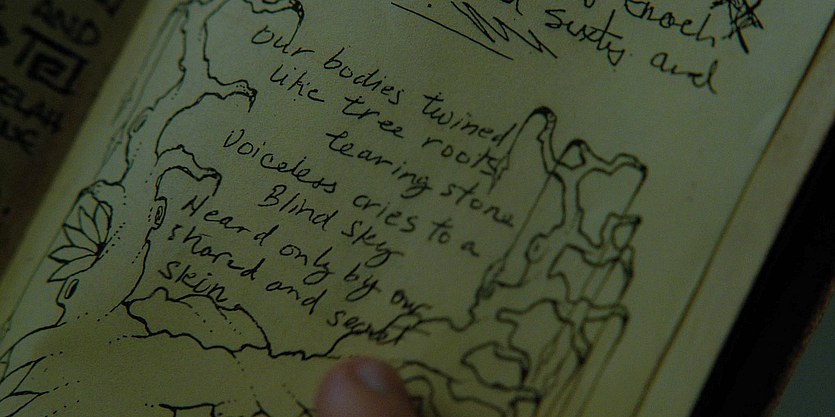 AND
SELAH
Enoch
d sixty and
our bodies twined
like tree roots
tearing stone
Voiceless cries to a
Blind sky
Heard only by our
shared and secret
skin